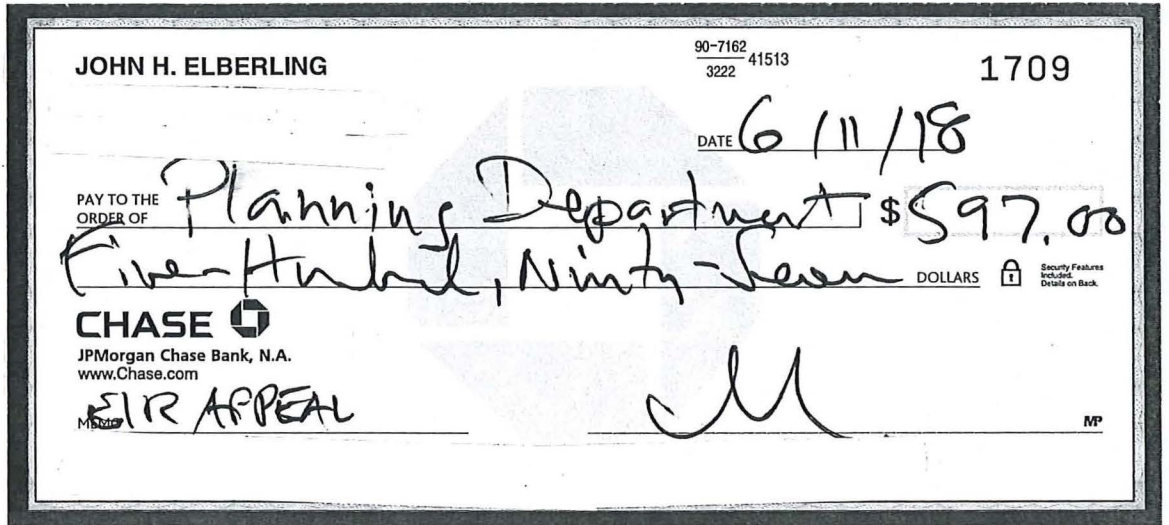 JOHN H. ELBERLING
90-7162
3222
41513
1709
DATE 6/11/18
PAY TO THE
ORDER OF Planning Department $ 597.00
Five Hundred, Ninety-Seven DOLLARS
Security Features
Included.
Details on Back.
CHASE
JPMorgan Chase Bank, N.A.
www.Chase.com
MEMO EIR APPEAL
MP